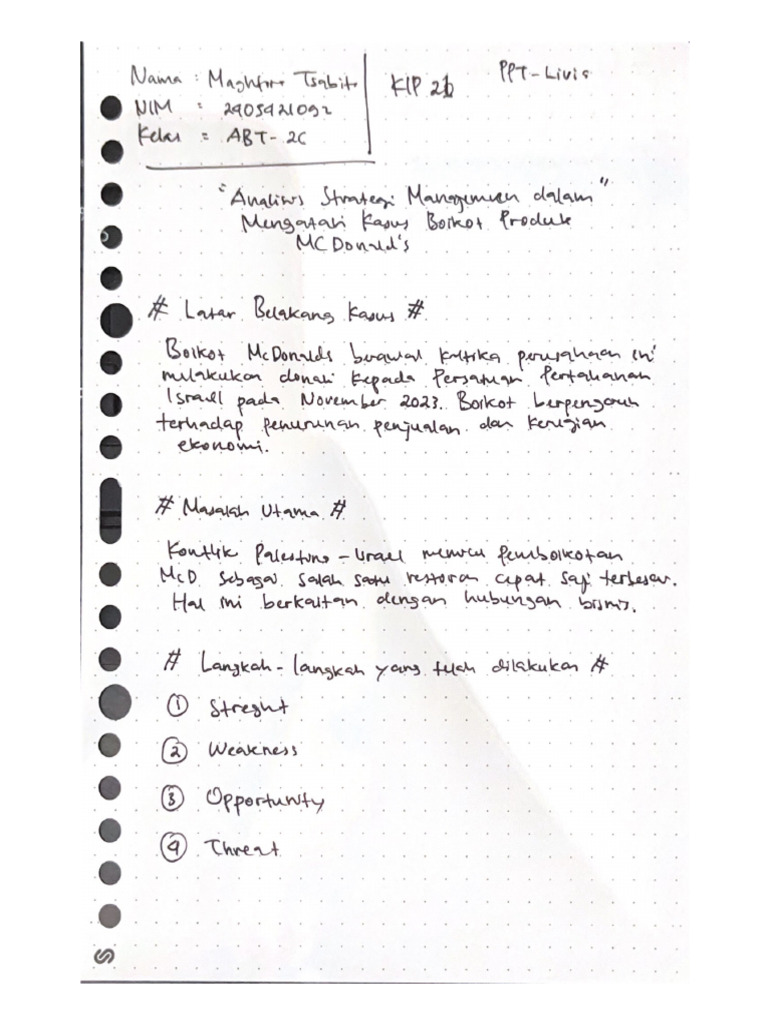 Nama : Maghfira Tsabita
NIM : 2905921092
Kelas = ABT - 2C
KIP 21
PPT - Livis
"Analisis Strategi Manajemen dalam"
Mengatasi Kasus Boikot Produk
MCDonald's
# Latar Belakang Kasus #
Boikot McDonalds berawal ketika perusahaan ini
melakukan donasi kepada Persatuan Pertahanan
Israel pada November 2023. Boikot berpengaruh
terhadap penurunan penjualan dan kerugian
ekonomi.
# Masalah Utama #
Konflik Palestina - Israel memicu pemboikotan
McD. Sebagai salah satu restoran cepat saji terbesar.
Hal ini berkaitan dengan hubungan bisnis.
# Langkah - langkah yang telah dilakukan #
① Streght
② Weakness
③ Opportunity
④ Threat